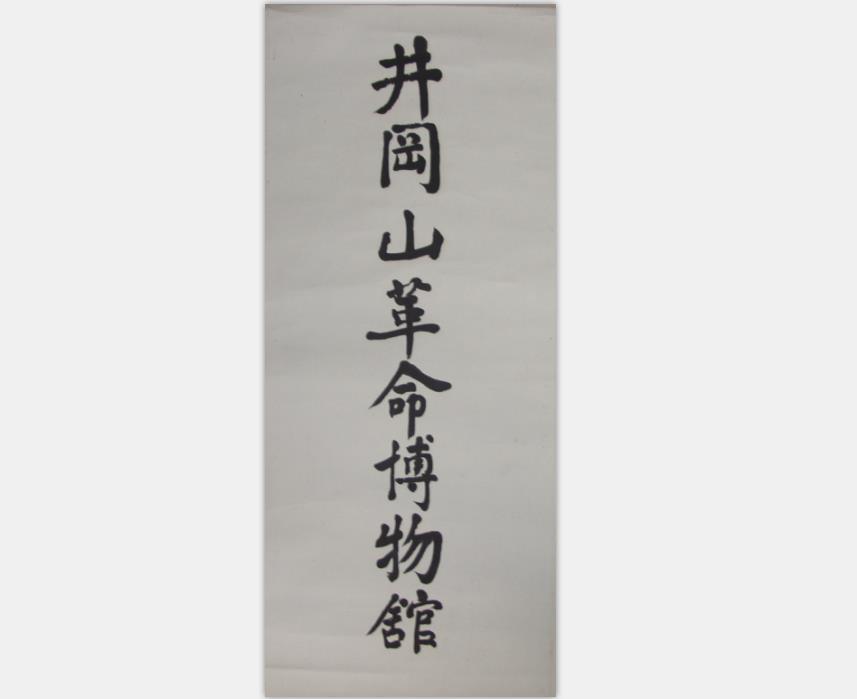 井岡山革命博物舘